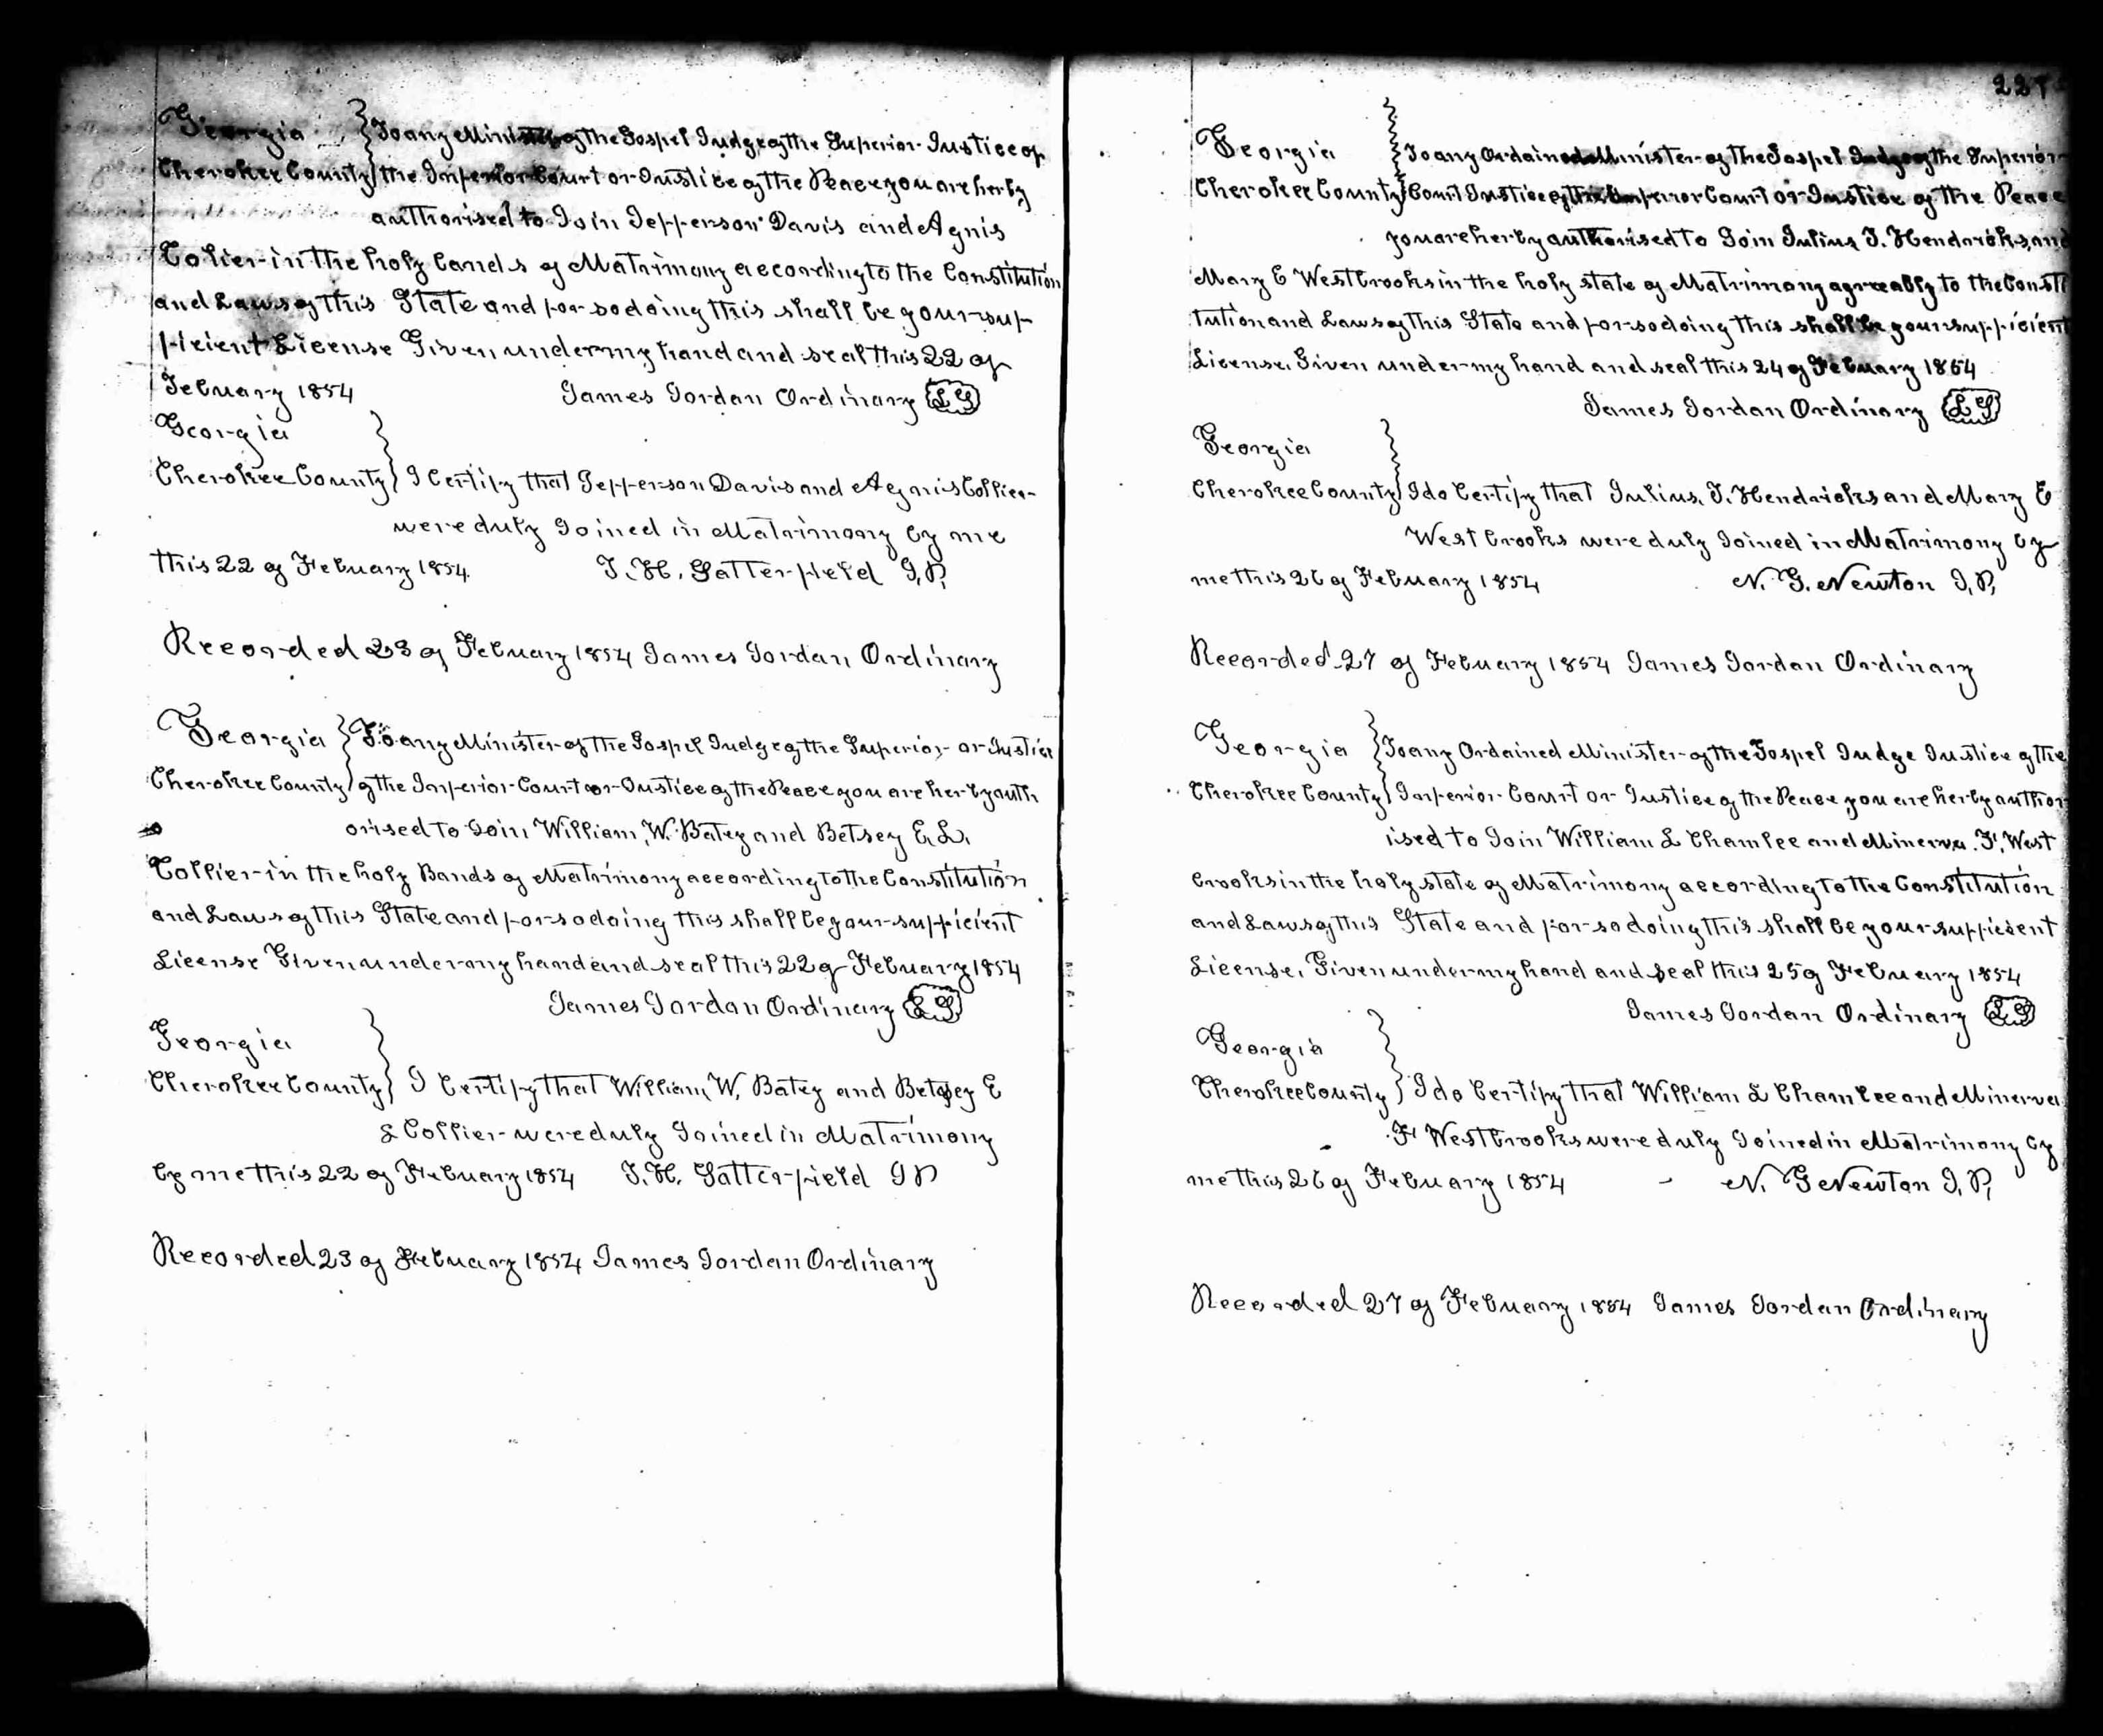 Georgia } To any Minister of the Gospel Judge of the Superior Justice of
Cherokee County } the Inferior Court or Justice of the Peace you are herby
authorised to Join Jefferson Davis and Agnis
Colier in the holy bands of Matrimony according to the Constitution
and Laws of this State and for so doing this shall be your suf
ficient License Given under my hand and seal this 22 of
Febuary 1854 James Jordan Ordinary LS
Georgia
Cherokee County } I Certify that Jefferson Davis and Agnis Collier
were duly Joined in Matrimony by me
this 22 of Febuary 1854. J. H. Satterfield J,P,
Recorded 23 of Febuary 1854 James Jordan, Ordinary
Georgia } To any Minister of the Gospel Judge of the Superior or Justice
Cherokee County } of the Inferior Court or Justice of the Peace you are herby auth
orised to Join William, W. Batey and Betsey E, L,
Collier in the holy Bands of Matrimony according to the Constitution
and Laws of this State and for so doing this shall be your sufficient
License Given under my hand and seal this 22 of Febuary 1854
James Jordan Ordinary LS
Georgia
Cherokee County } I Certify that William, W, Batey and Betsey E
L Collier were duly Joined in Matrimony
by me this 22 of Febuary 1854 J. H, Satterfield JP
Recorded 23 of Febuary 1854 James Jordan Ordinary
Georgia } To any Ordained Minister of the Gospel Judge of the Superior
Cherokee County } Court Justice of the Inferior Court or Justice of the Peace
you are herby authorised to Join Julius J. Hendricks, and
Mary E Westbrooks in the holy state of Matrimony agreeably to the Consti
tution and Laws of this State and for so doing this shall be your sufficient
License, Given under my hand and seal this 24 of Febuary 1854
James Jordan Ordinary LS
Georgia
Cherokee County } I do Certify that Julius, J. Hendricks and Mary E
Westbrooks were duly Joined in Matrimony by
me this 26 of Febuary 1854 N. G. Newton J,P,
Recorded 27 of Febuary 1854 James Jordan Ordinary
Georgia } To any Ordained Minister of the Gospel Judge Justice of the
Cherokee County } Inferior Court or Justice of the Peace you are herby author
ised to Join William L Chamlee and Minerva. F, West
brooks in the holy state of Matrimony according to the Constitution
and Laws of this State and for so doing this shall be your sufficient
License, Given under my hand and seal this 25 of Febuary 1854
James Jordan Ordinary LS
Georgia
Cherokee County } I do Certify that William L Chamlee and Minerva
F Westbrooks were duly Joined in Matrimony by
me this 26 of Febuary 1854 N. G Newton J,P,
Recorded 27 of Febuary 1854 James Jordan Ordinary